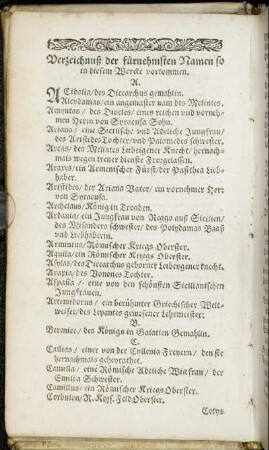 Verzeichnuß der fürnehmsten Namen so
in diesem Wercke vorkommen.
A.
Acidalia/ des Diccarchus gemahlin.
Alcydamas/ ein angemaster nam des Melintes.
Amyntas/ des Diocles/ eines reichen und vornehmen Herrn von Syracusa Sohn.
Ariana/ eine Sicilische und Adeliche Jungfrau/
des Aristides Tochter/ und Palamedes schwester.
Arcas/ des Melintes Leibeigener Knecht/ hernachmals
wegen treuer dienste Freygelassen.
Araxes/ ein Armenischer Fürst/ der Pasithea Liebhaber.
Aristides/ der Ariana Vater/ ein vornehmer Herr
von Syracusa.
Archelaus/ König in Troaden.
Ardania/ ein Jungfrau von Roggo auß Sicilien/
des Misanders schwester/ des Polydamas Baaß
und Liebhaberin.
Arminius/ Römischer Kriegs Oberster.
Aquila/ ein Römischer Kriegs Oberster.
Asylas/ des Diccarchus geborner Leibeygener knecht.
Araxia/ des Vonones Tochter.
Aspasia/ eine von den schönsten Sicilianischen
Jungfrauen.
Artemidorus/ ein berühmter Griechischer Weltweiser/
des Lepantes gewesener Lehrmeister:
B.
Berenice/ des Königs in Galatien Gemahlin.
C.
Callias/ einer von der Cyllenia Freyern/ den sie
hernachmals geheyrathet.
Camilla/ eine Römische Adeliche Witfrau/ der
Emilia Schwester.
Camillus/ ein Römischer Kriegs Oberster.
Corbulon/ R. Keys. Feld Oberster.
Cotys